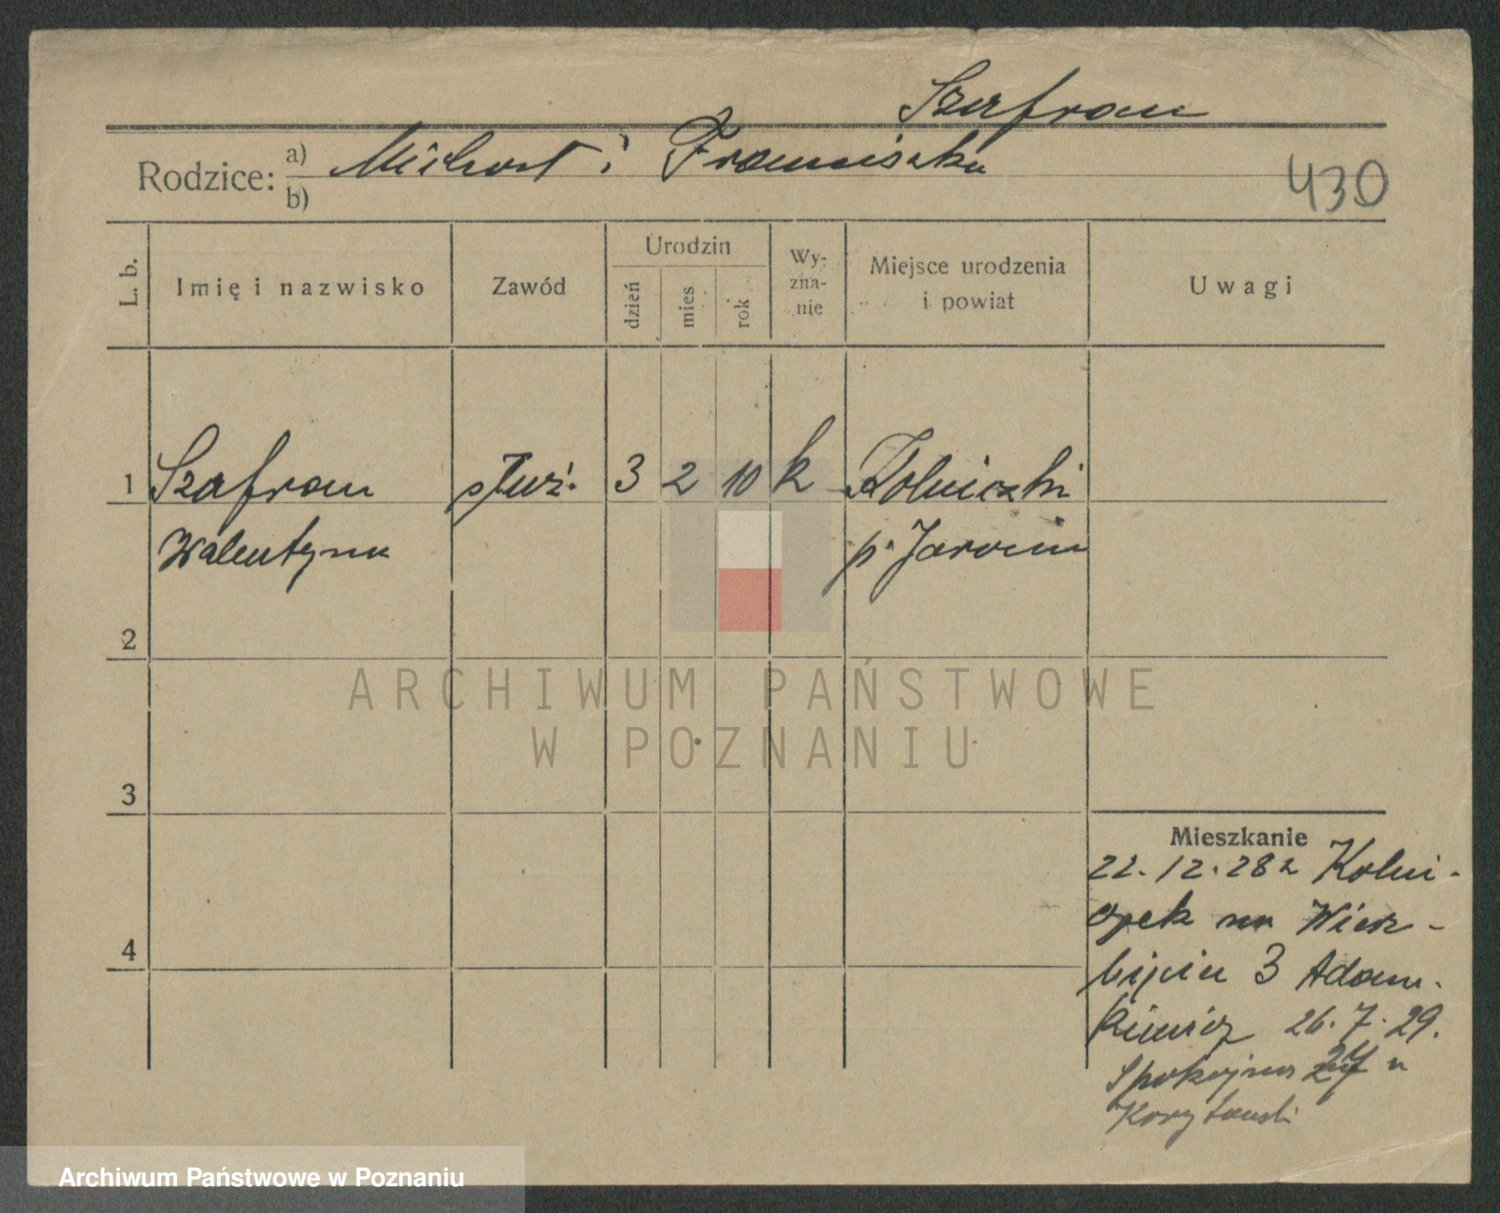 Szafran
Rodzice: a) Michał i Franciszka
b)
430
L. b.
Imię i nazwisko
Zawód
Urodzin
dzień
mies
rok
Wy-
zna-
nie
Miejsce urodzenia
i powiat
Uwagi
1 Szafran służ. 3 2 10 k Kolniczki
Walentyna p. Jarocin
2
3
4
Mieszkanie
22.12.28 z Kolni-
czek na Wierz-
bięcin 3 Adam-
kiewicz 26.7.29.
Spokojna 24 u
ARCHIWUM PAŃSTWOWE
W POZNANIU
Archiwum Państwowe w Poznaniu